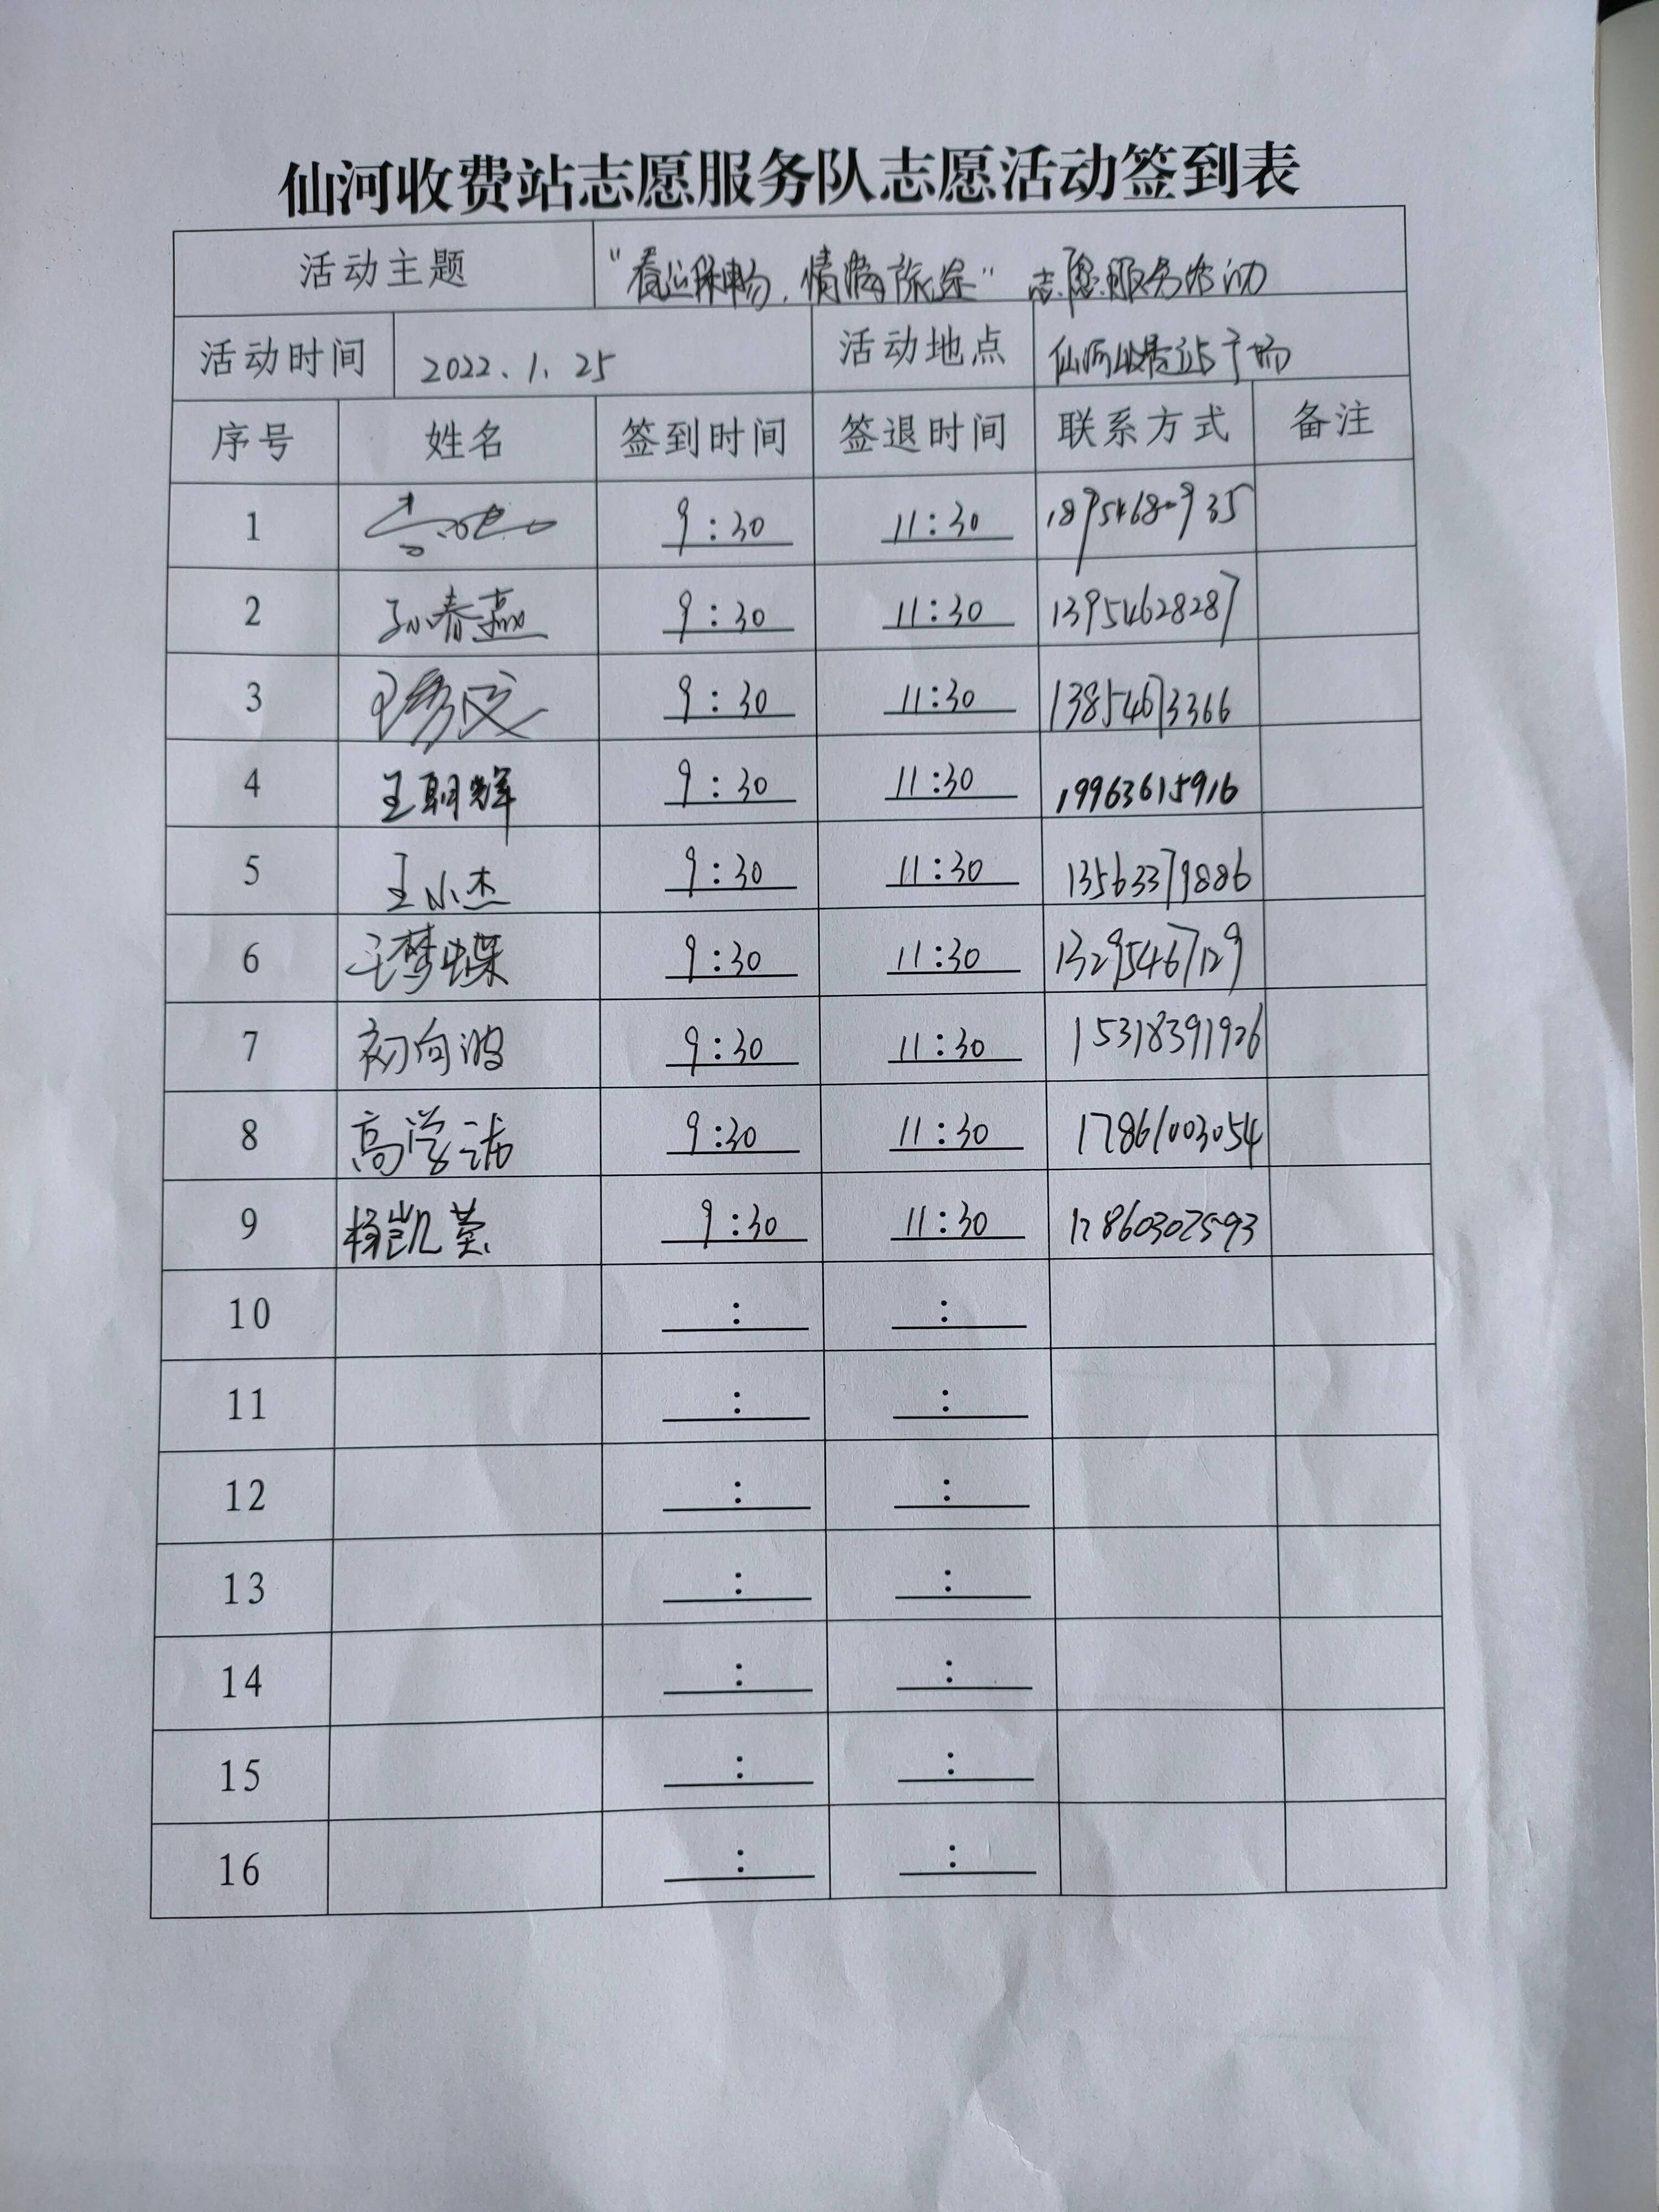 仙河收费站志愿服务队志愿活动签到表
活动主题 "春运保畅,情满旅途" 志愿服务活动
活动时间 2022.1.25 活动地点 仙河收费站广场
序号 姓名 签到时间 签退时间 联系方式 备注
1 9:30 11:30
2 孙春燕 9:30 11:30 13954628287
3 9:30 11:30 13854673366
4 王朝辉 9:30 11:30 19963615916
5 王小杰 9:30 11:30 13563379886
6 王梦蝶 9:30 11:30 13295467129
7 初向波 9:30 11:30 15318391926
8 高学 9:30 11:30 17861003054
9 杨凯 9:30 11:30 17860302593
10 : :
11 : :
12 : :
13 : :
14 : :
15 : :
16 : :